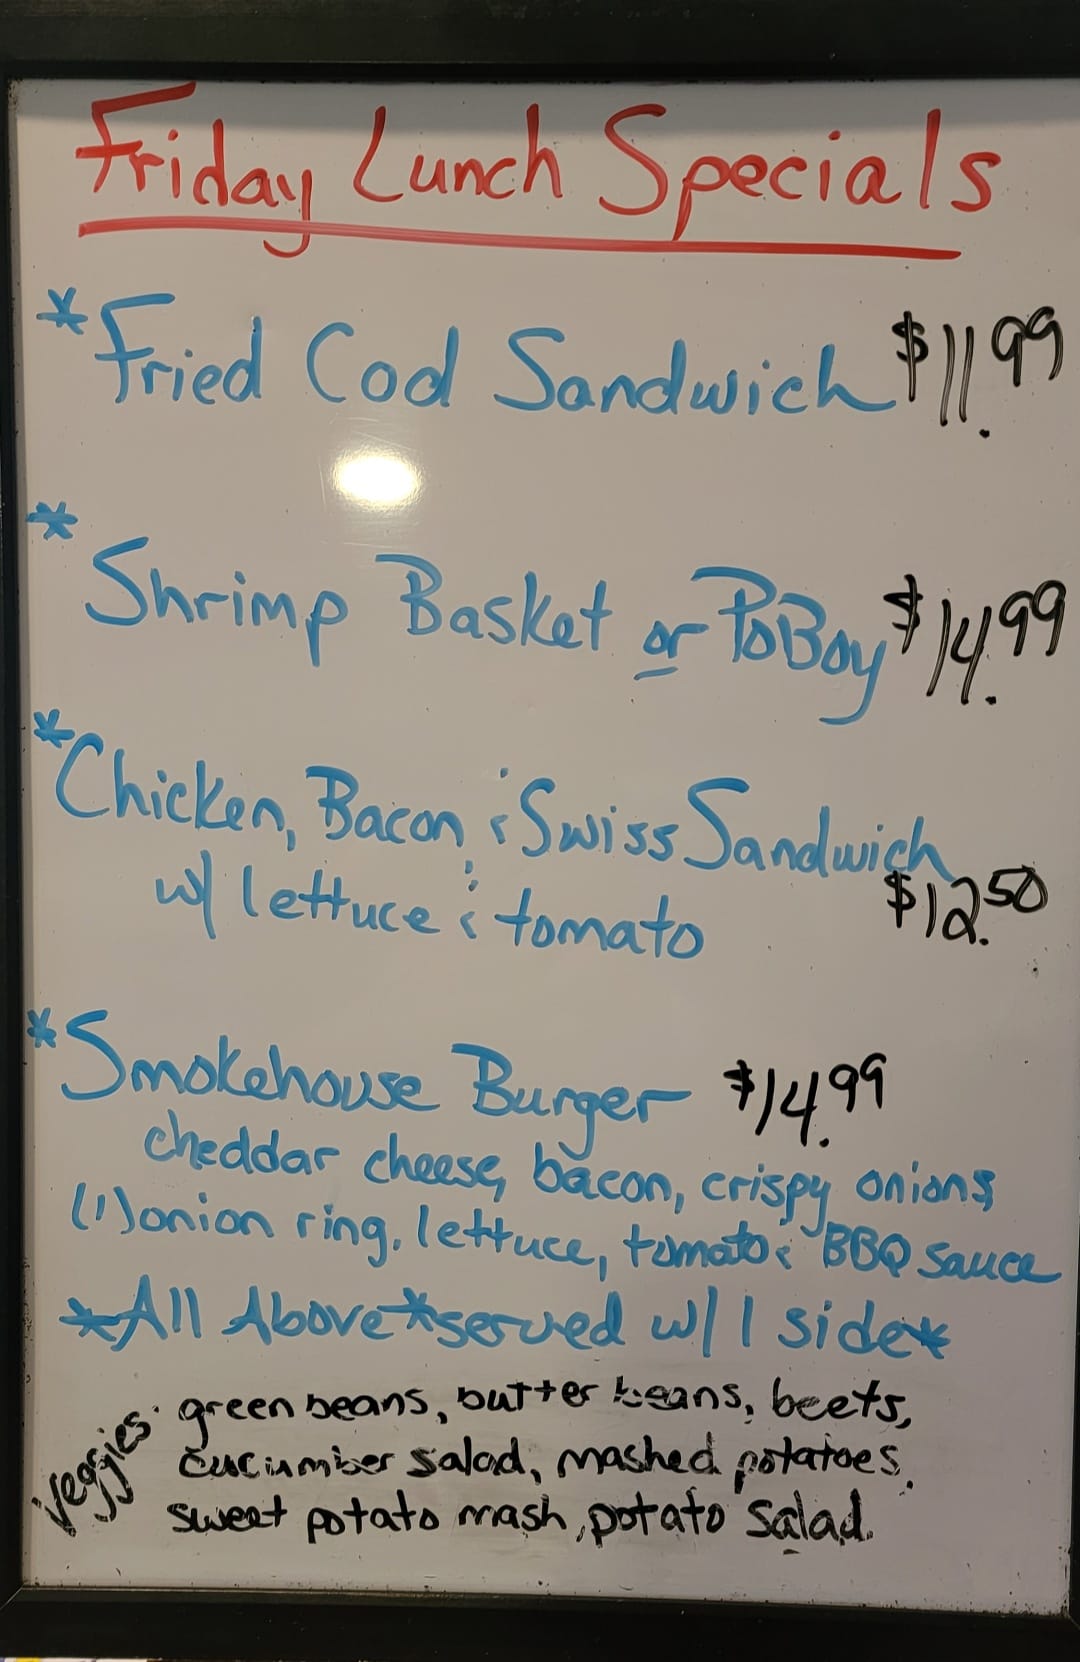 Friday Lunch Specials
*Fried Cod Sandwich $11.99
*Shrimp Basket or PoBoy $14.99
*Chicken, Bacon, & Swiss Sandwich
w/ lettuce & tomato $12.50
*Smokehouse Burger $14.99
cheddar cheese, bacon, crispy onions,
(1) onion ring, lettuce, tomato & BBQ sauce
*All Above* served w/ 1 side*
veggies: green beans, butter beans, beets,
cucumber salad, mashed potatoes,
sweet potato mash, potato salad.